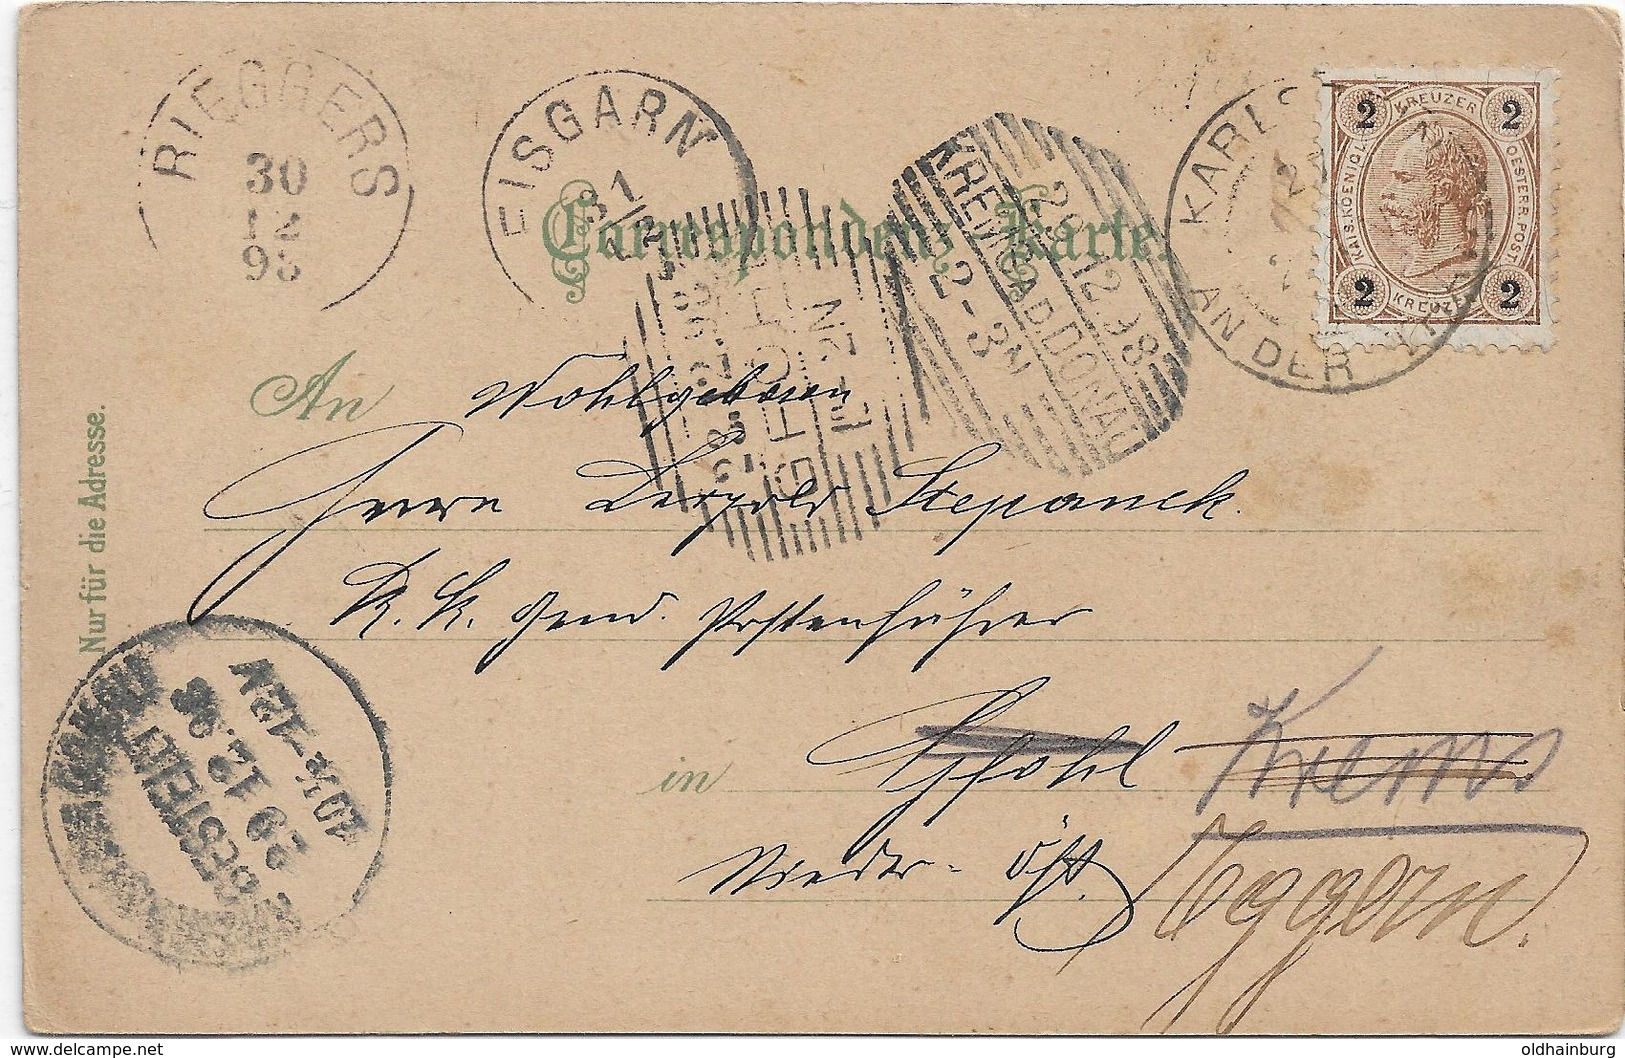 RIEGGERS
30
12
98
EISGARN
31
12
KREMS A.D. DONAU
29.12.98
2-3N
KARLS
AN DER
2 KREUZER 2
KAIS. KOENIGL. OESTERR. POST.
2 KREUZER 2
Correspondenz-Karte.
Nur für die Adresse.
GFÖHL
An Wohlgeboren
Herrn Leopold Stepanek.
K. K. Gend. Postenführer
in Gföhl Krems
Nieder-Öst. Eggern.
BESTELLT
29 12.98
www.delcampe.net
oldhainburg